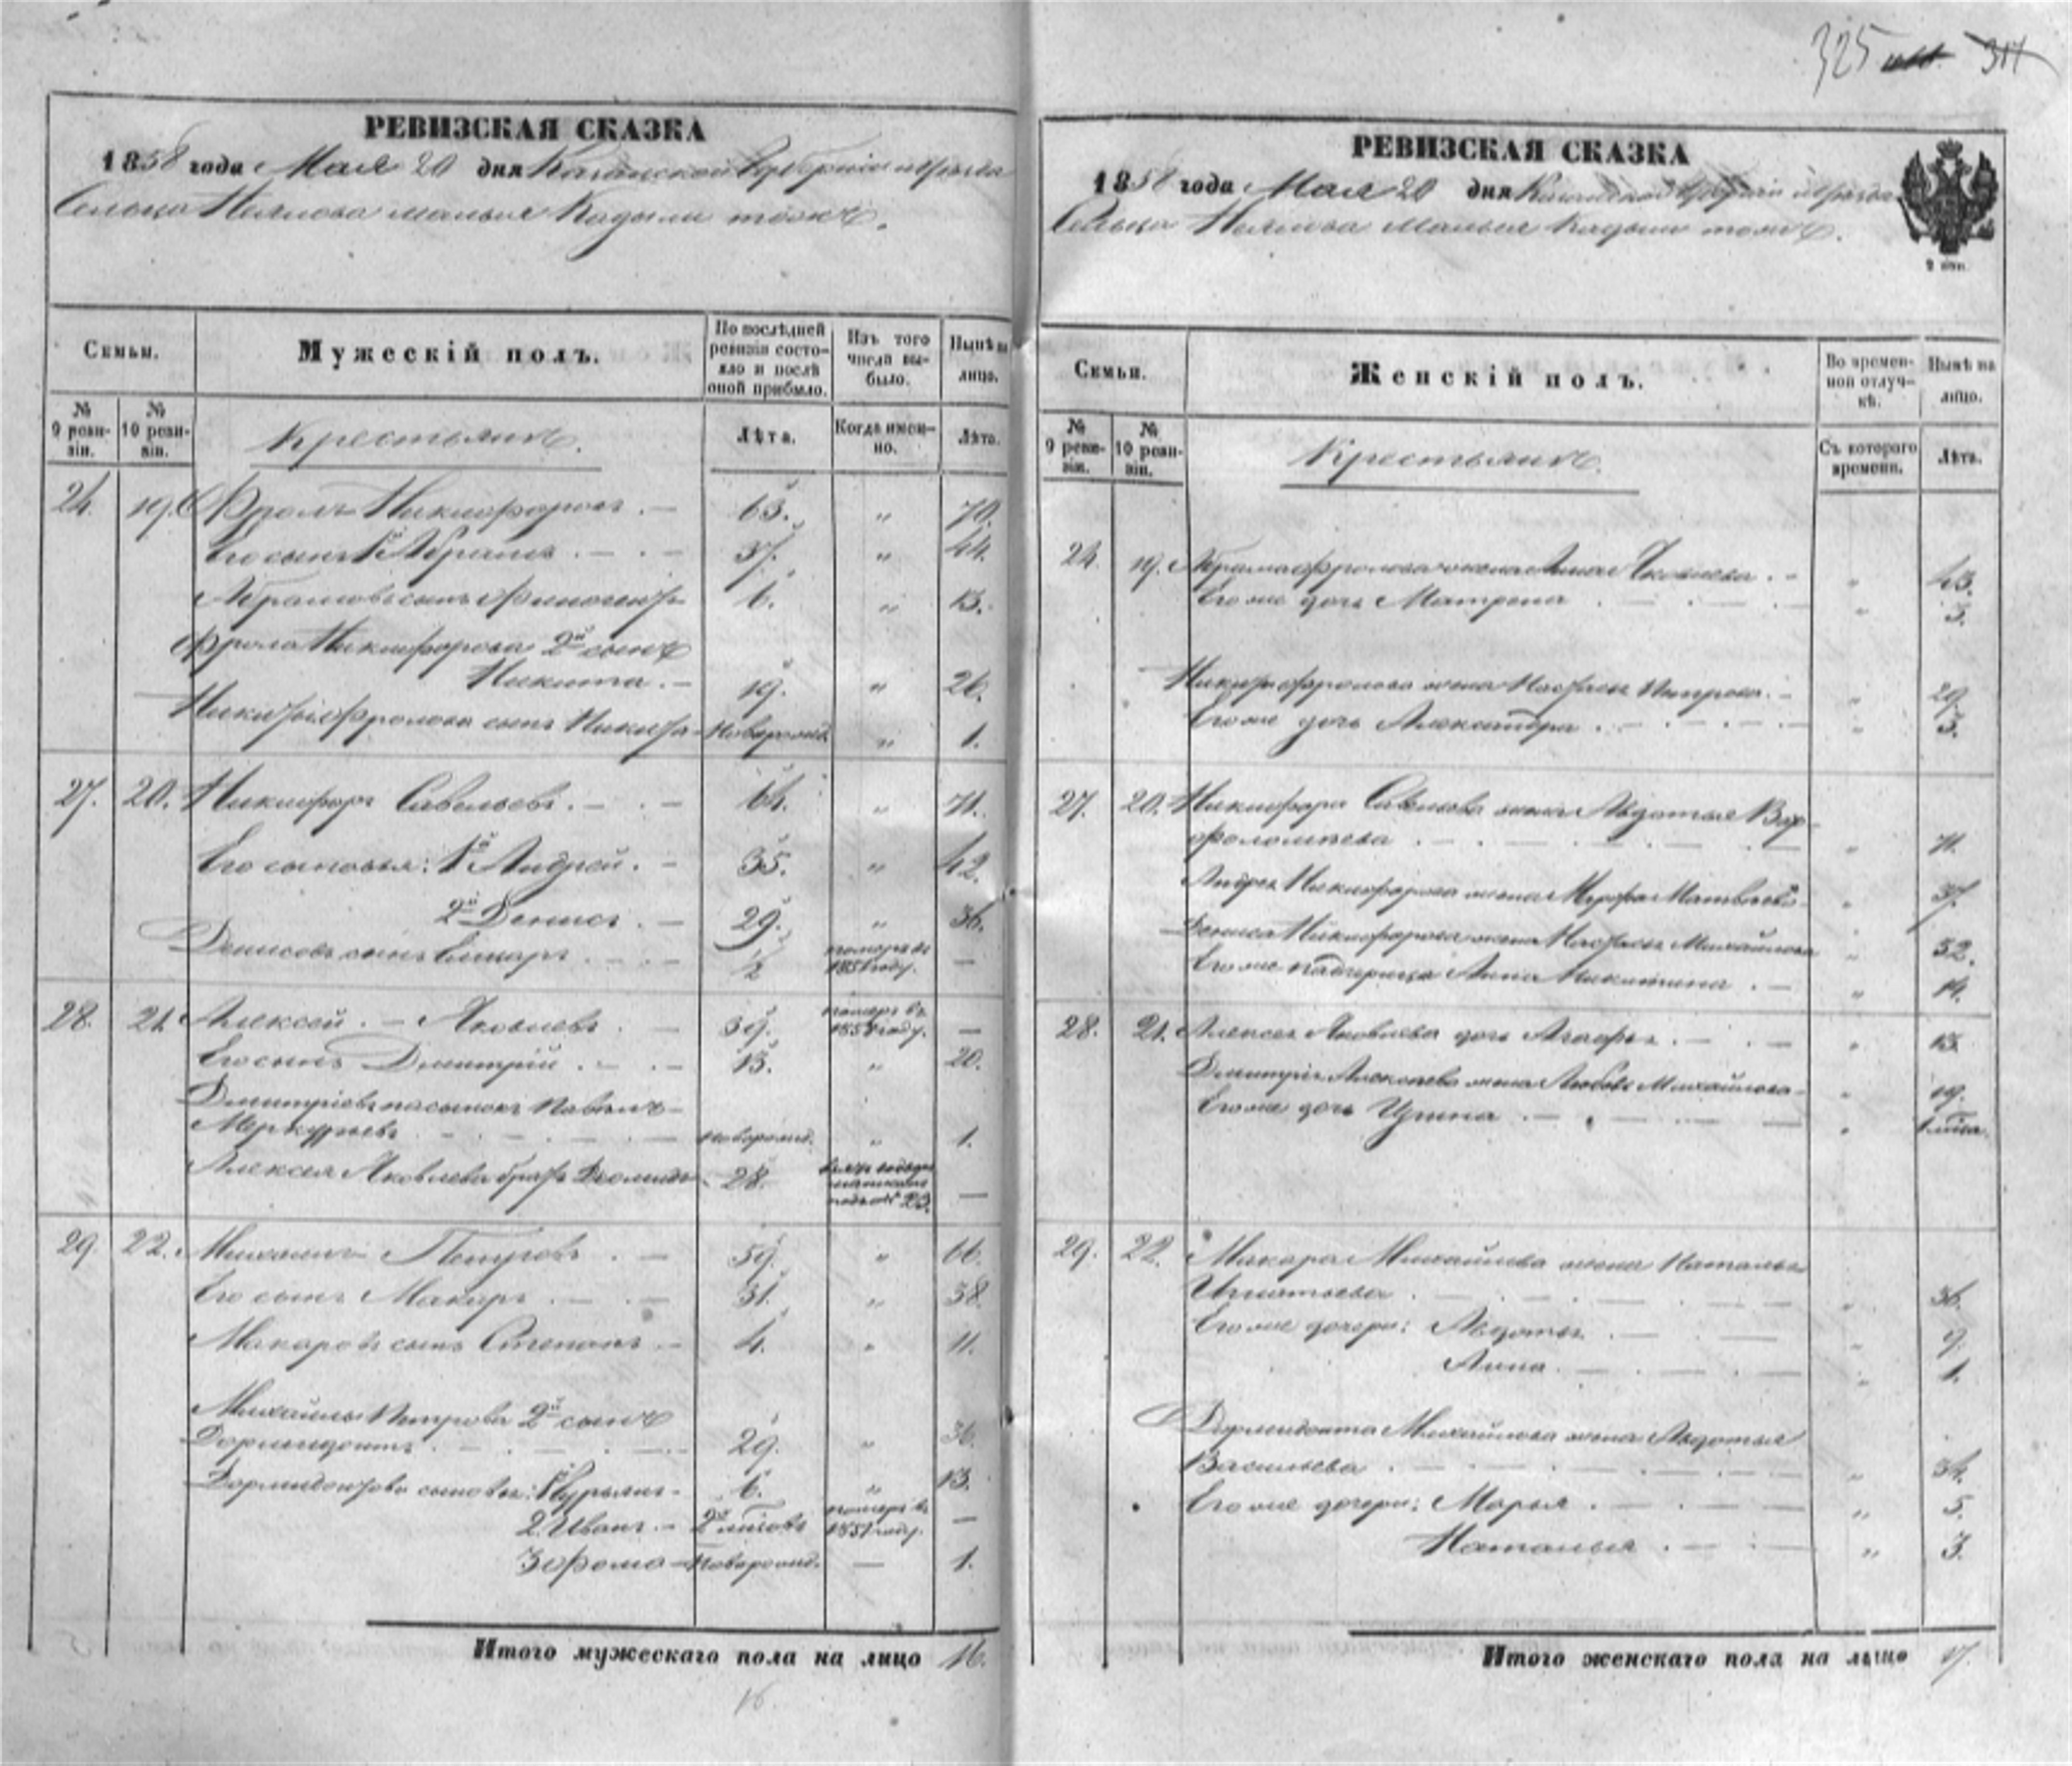 325
РЕВИЗСКАЯ СКАЗКА
1858 года Мая 20 дня Казанской Губерніи и уѣзда
Сельца Неялова малыя Кадыли тожъ.
Семьи.
Мужескій полъ.
По послѣдней ревизіи состояло и послѣ оной прибыло.
Изъ того числа выбыло.
Нынѣ на лицо.
№ 9 ревизіи.
№ 10 ревизіи.
Крестьянъ.
Лѣта.
Когда именно.
Лѣта.
24. 19. Фролъ Никифоровъ. — 63. „ 70.
Его сынъ 1й Абрамъ . — . — 37. „ 44.
Абрамовъ сынъ 6. „ 13.
Фрола Никифорова 2й сынъ
Никита. — 19. „ 26.
Фролова сынъ новорожд. „ 1.
27. 20. Никифоръ Савельевъ. — . — 64. „ 71.
Его сыновья: 1й Андрей. — 35. „ 42.
2й Денисъ. — 29. „ 36.
Денисовъ сынъ ½ померъ въ 185 году. —
28. 21. Алексей . — Яковлевъ . — 39. померъ въ 185 году. —
Его сынъ Дмитрій . — . — 13. „ 20.
Дмитріевъ пасынокъ Павелъ —
Меркурьевъ новорожд. „ 1.
Алексея Яковлева братъ 28. —
29. 22. Михаилъ Петровъ . — 59. „ 66.
Его сынъ Макаръ . — . — 31. „ 38.
Макаровъ сынъ Степанъ — 4. „ 11.
Михайлы Петрова 2й сынъ
Дормидонтъ 29. „ 36.
Дормидонтовы сыновья: 1й 6. „ 13.
2. Иванъ. — померъ въ 1851 году. —
3 Фома — новорожд. — 1.
Итого мужескаго пола на лицо 16.
16
РЕВИЗСКАЯ СКАЗКА
1858 года Мая 20 дня Казанской Губерніи и уѣзда
Сельца Неялова Малыя Кадыли тожъ.
Семьи.
Женскій полъ.
Во временной отлучкѣ.
Нынѣ на лицо.
№ 9 ревизіи.
№ 10 ревизіи.
Крестьянъ.
Съ котораго времени.
Лѣта.
24. 19. Абрама Фролова жена Анна Яковлева . — „ 43.
Его же дочь Матрена . — . — „ 3.
Фролова жена Настасья Петрова. — „ 29.
Его же дочь Александра . — . — „ 3.
27. 20. Никифора Савельева жена Авдотья Вар-
фоломѣева „ 71.
Андрея Никифорова жена Матвѣева „ 37.
Дениса Никифорова жена Настасья Михайлова „ 32.
Его же падчерица Анна Никитина . — „ 14.
28. 21. Алексея Яковлева дочь Агафья . — . — „ 13.
Дмитрія Алексѣева жена Любовь Михайлова — „ 19.
Его же дочь „
29. 22. Макара Михайлова жена Наталья
Игнатьева „ 36.
Его же дочери: Авдотья „ 9.
Анна. „ 1.
Дормидонта Михайлова жена Авдотья
Васильева „ 34.
Его же дочери: Марья . — „ 5.
Наталья . — „ 3.
Итого женскаго пола на лицо 17.